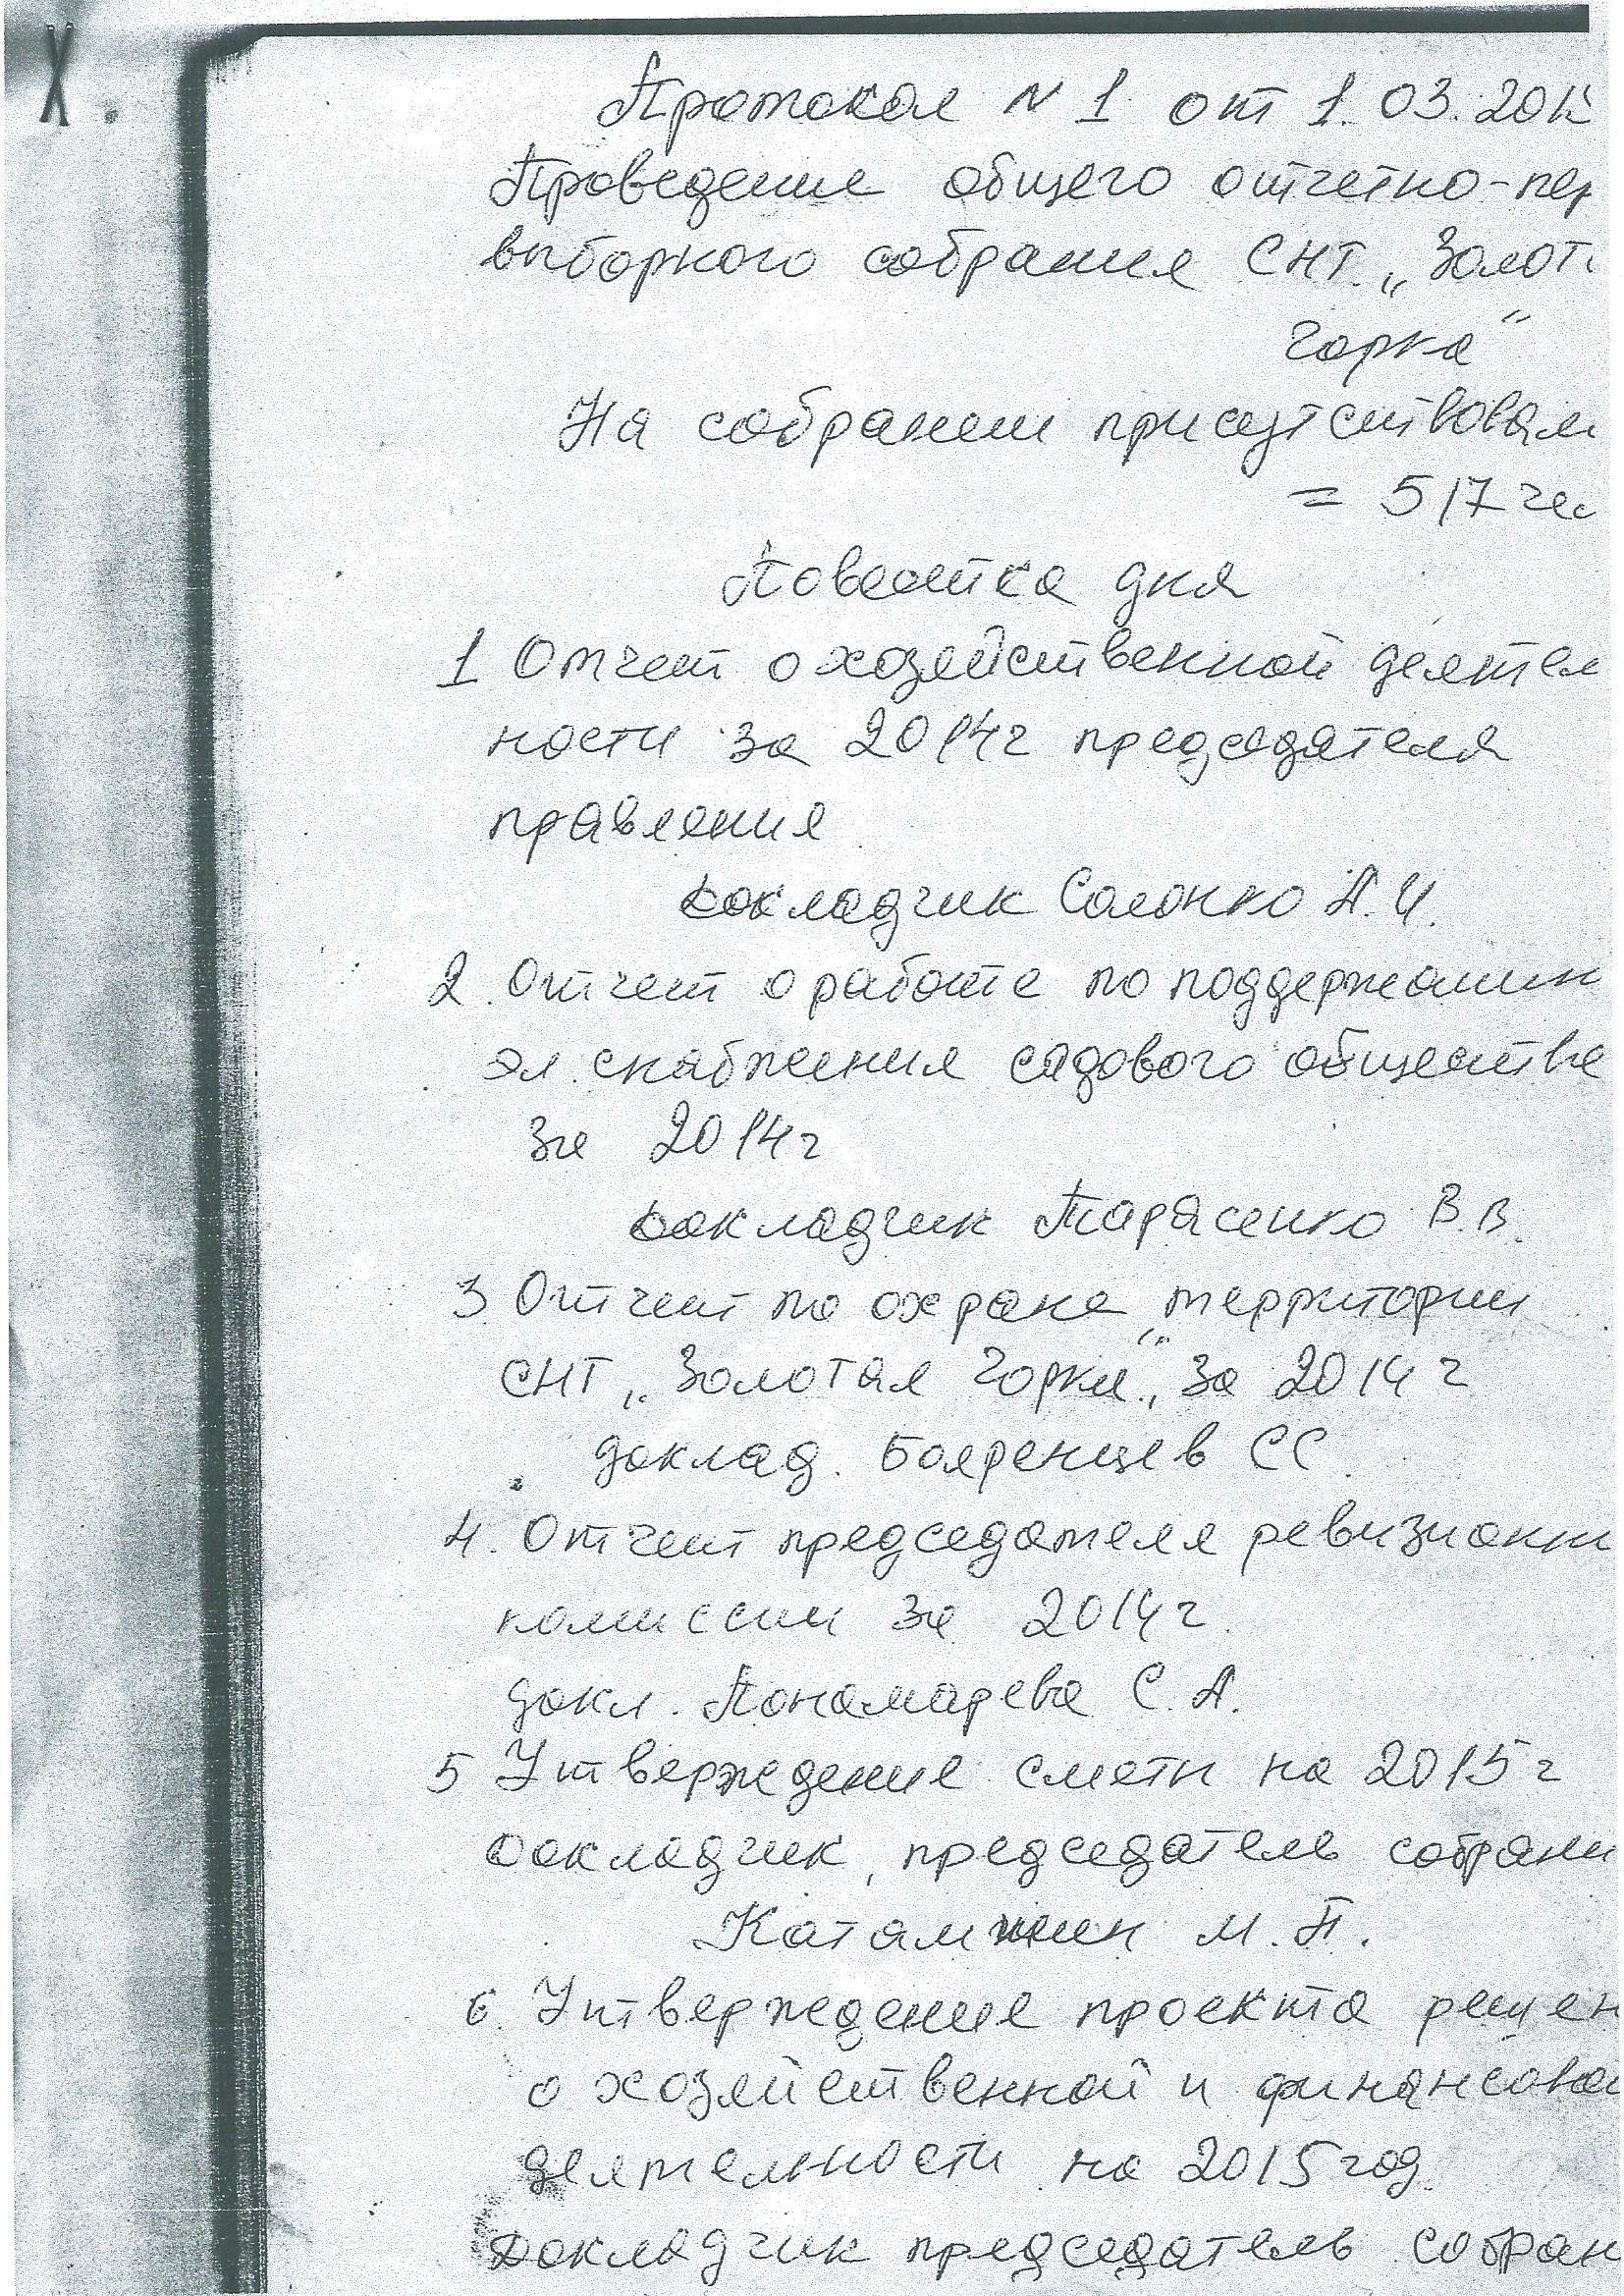 Протокол N 1 от 1.03.201
Проведение общего отчетно-пер
выборного собрания СНТ „Золот
Горка"
На собрании присутствовали
= 517 чел
Повестка дня
1 Отчет о хозяйственной деятел
ности за 2014г председателя
правления
Докладчик Солонко А.И.
2. Отчет о работе по поддержании
эл. снабжения садового общества
за 2014г
Докладчик Тарасенко В.В.
3 Отчет по охране территории
СНТ „Золотая Горка" за 2014 г
доклад. Бояренцев С С.
4. Отчет председателя ревизионн
комиссии за 2014г.
докл. Пономарева С.А.
5 Утверждение сметы на 2015г
Докладчик, председатель собрани
М.П.
6. Утверждение проекта решен
о хозяйственной и финансовой
деятелности на 2015 год.
Докладчик председатель собран